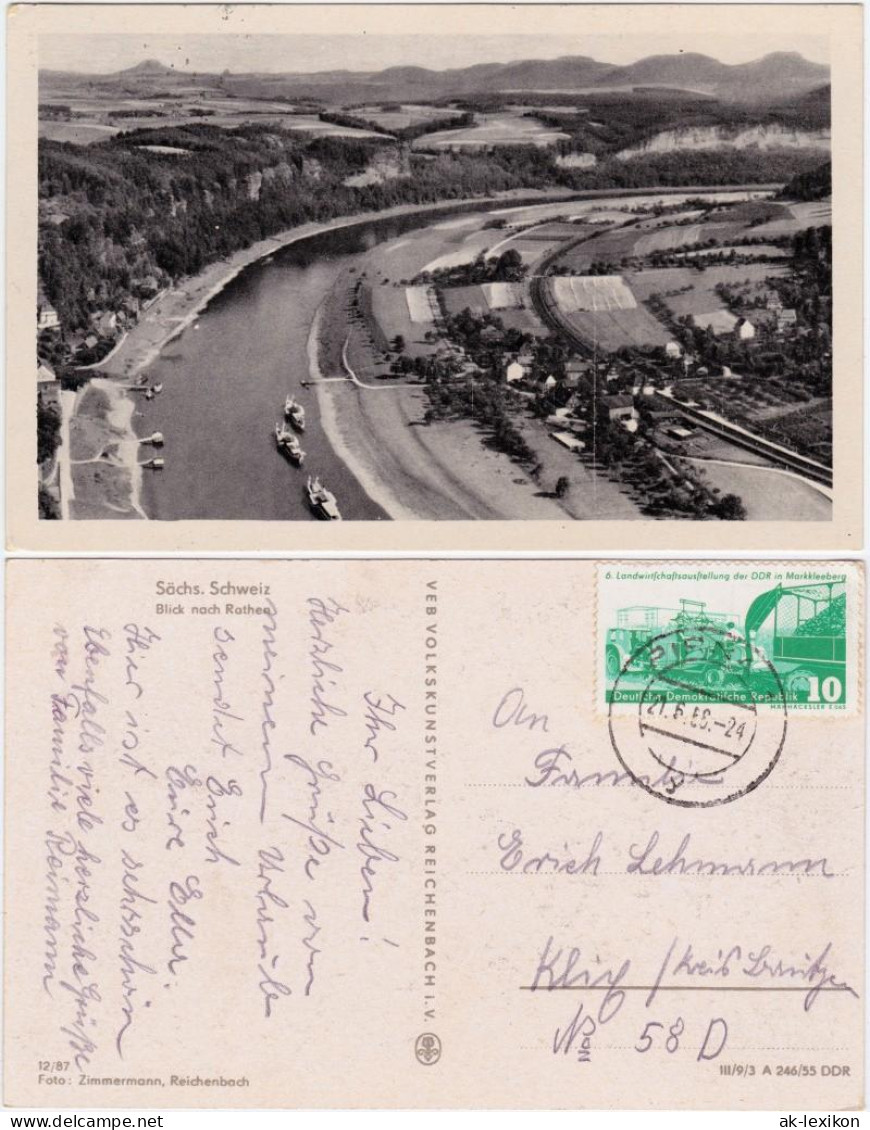 Sächs. Schweiz
Blick nach Rathen
Ihr Lieben!
Herzliche Grüße von
meinem Urlaub
sendet Erich
Eure Eltern.
Hier ist es sehr schön
Ebenfalls viele herzliche Grüße
von Familie Reimann
12/87
Foto: Zimmermann, Reichenbach
VEB VOLKSKUNSTVERLAG REICHENBACH i. V.
6. Landwirtschaftsausstellung der DDR in Markkleeberg
Deutsche Demokratische Republik 10
MÄHHÄCKSLER E 065
21.6.58.-24
An
Familie
Erich Lehmann
Klix / Kreis Bautzen
Nr. 58 D
III/9/3 A 246/55 DDR
ak-lexikon